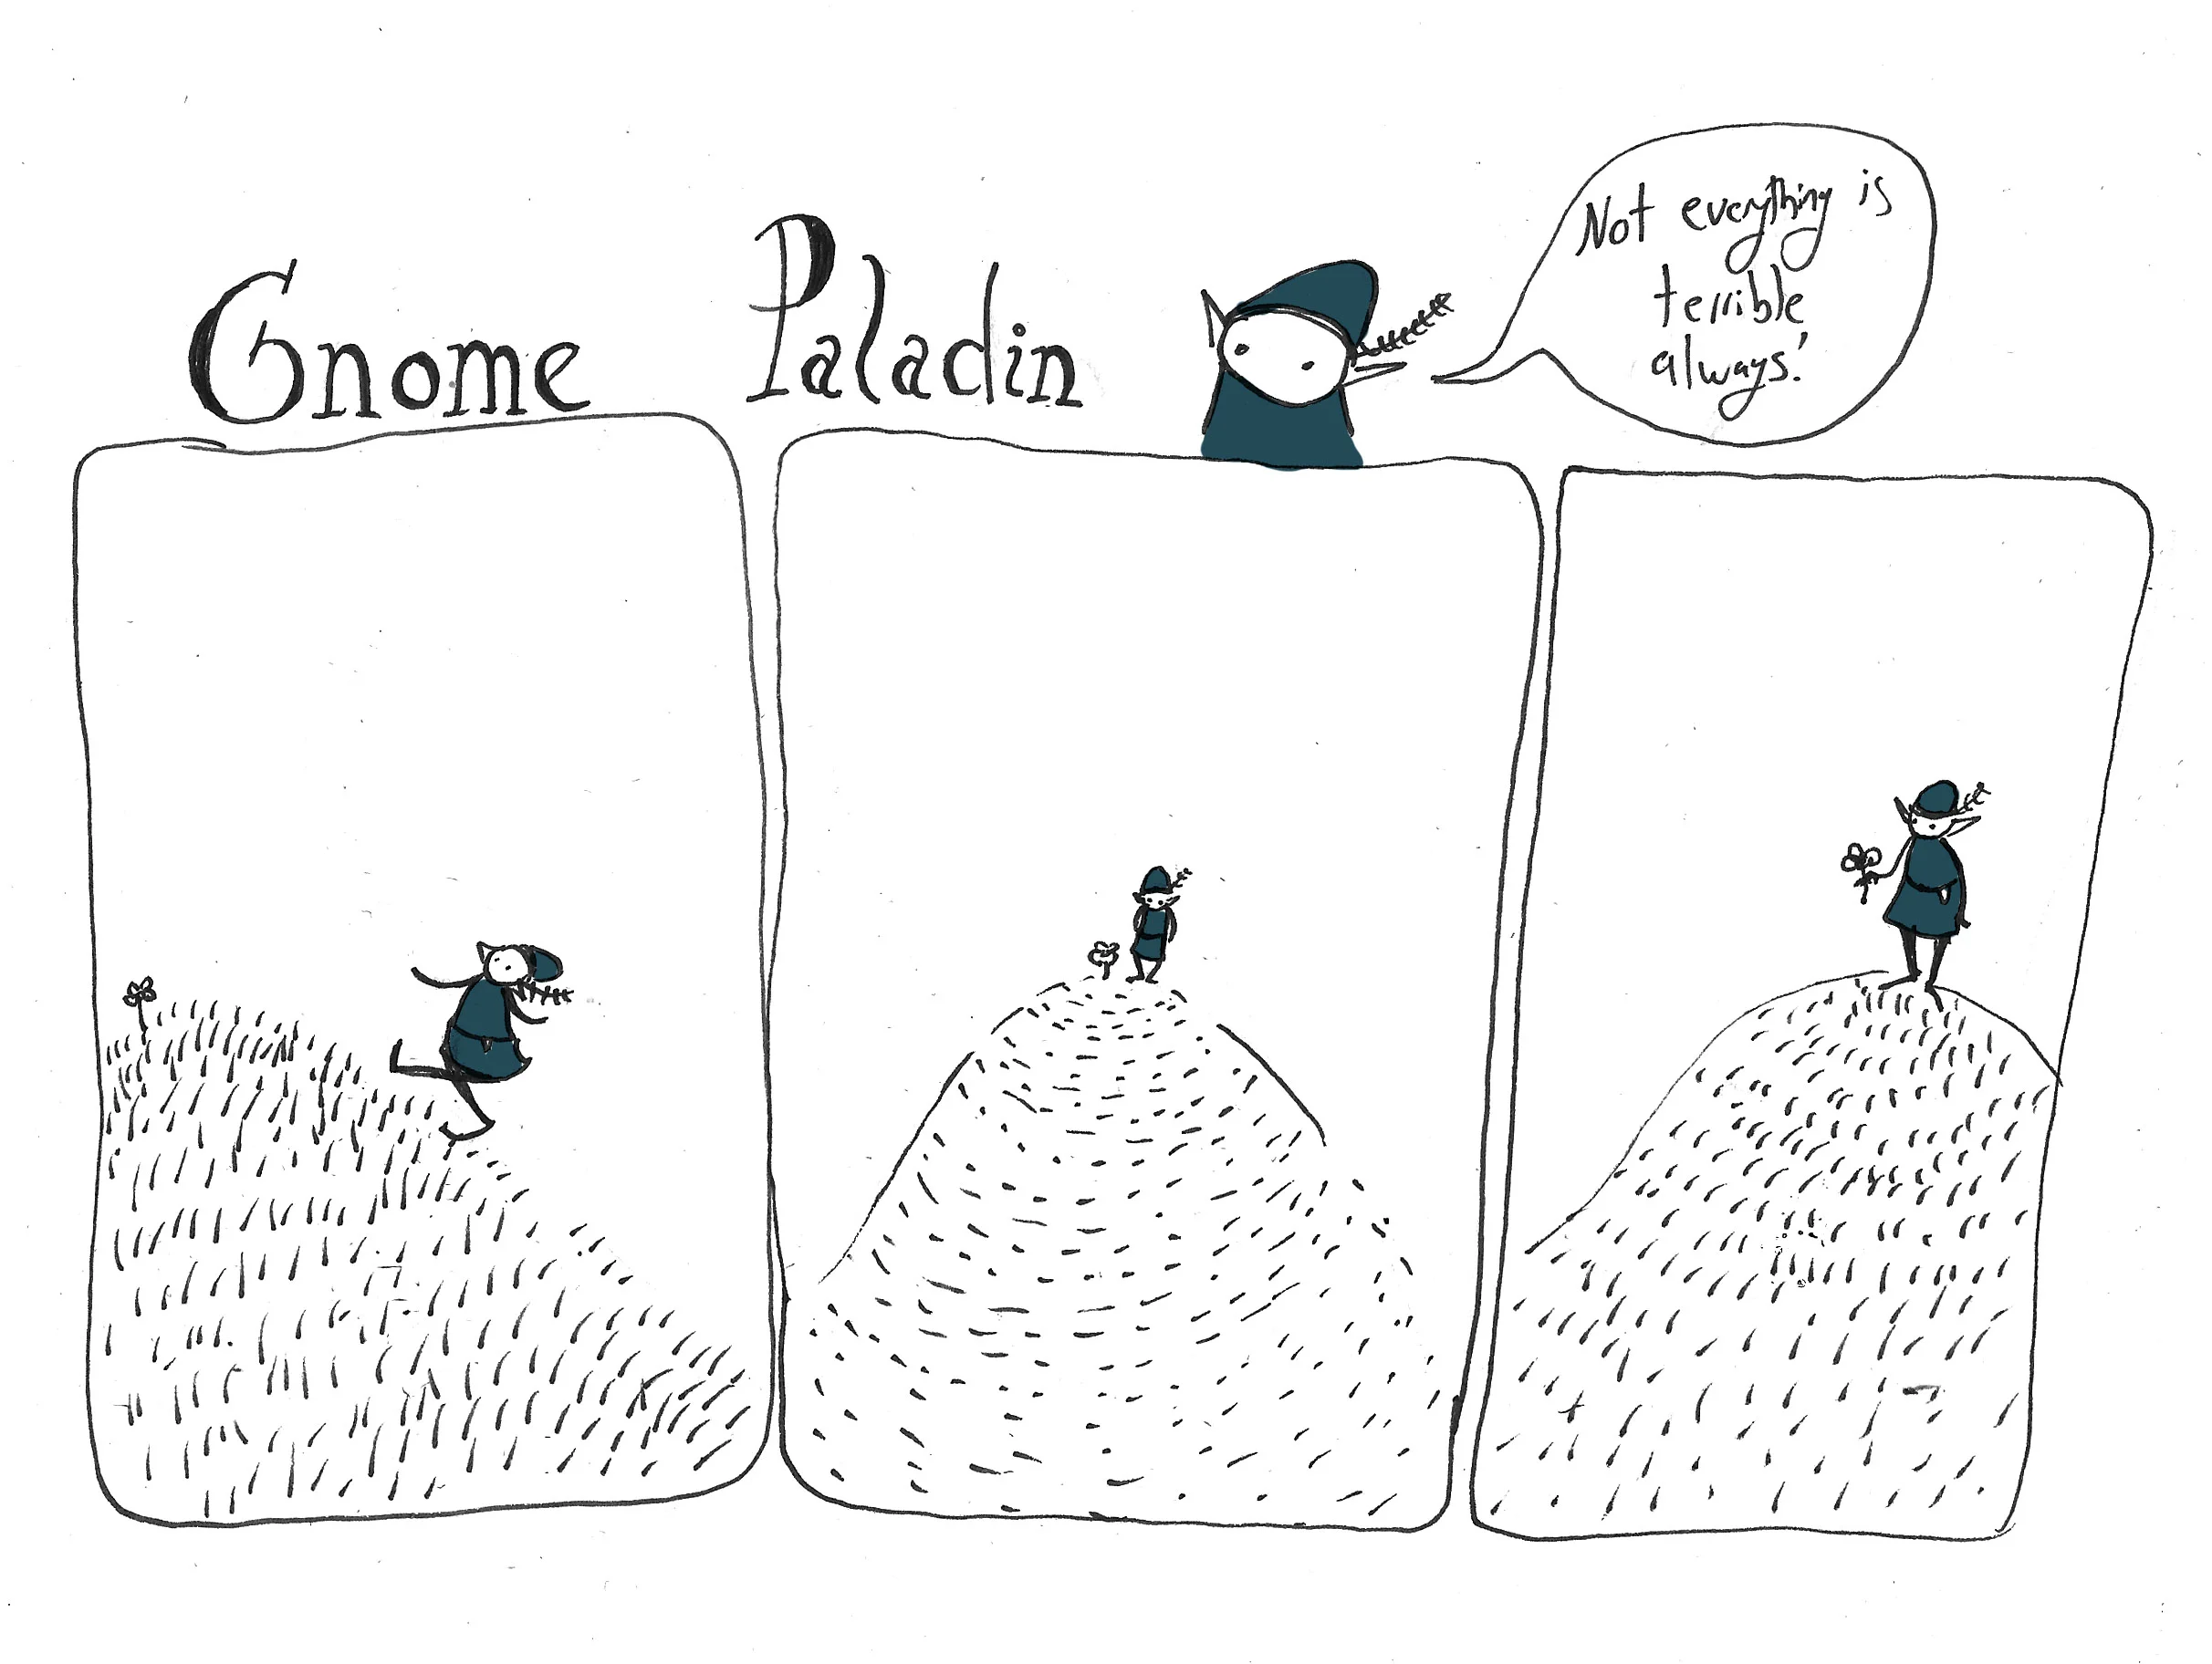 Gnome Paladin
Not everything is
terrible
always!